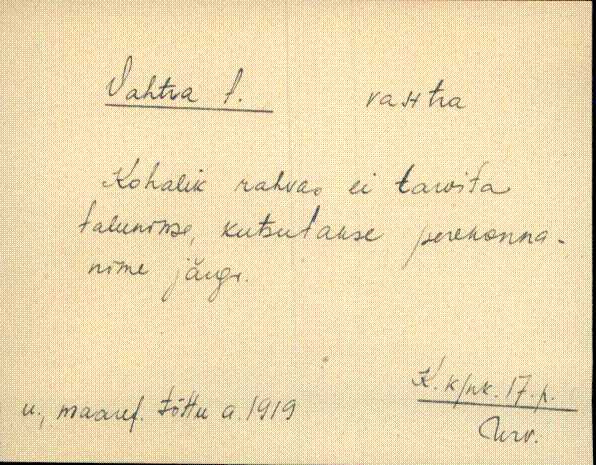 Vahtra t. vaHtra
Kohalik rahvas ei tarvita
talunime, kutsutakse perekonna-
nime järgi.
K. k/nk. 17. p.
u., maaref. tõttu a. 1919
Urv.